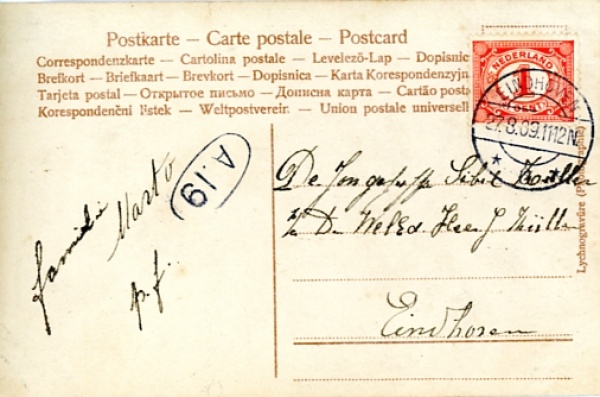 Postkarte — Carte postale — Postcard
Correspondenzkarte — Cartolina postale — Levelező-Lap — Dopisnic
Brefkort — Briefkaart — Brevkort — Dopisnica — Karta Korespondenzyjn
Tarjeta postal — Открытое письмо — Дописна карта — Cartão posta
Korespondenční lístek — Weltpostverein. — Union postale universell
NEDERLAND
1
CENT
EINDHOVEN
27.8.09.11-12N.
A.19
familie
p.f.
De
Sibil
De WelEd. Heer J
Eindhoven
Lychnogravüre (Photographie)